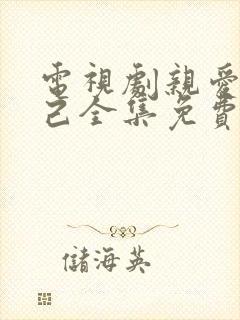 電視劇親愛
己全集免費
儲海英